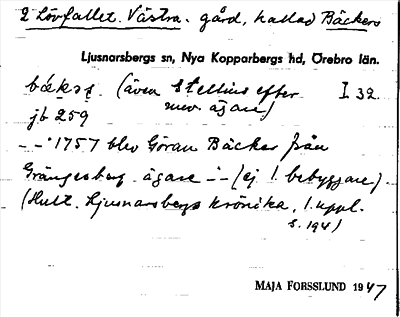 2 Lövfallet. Västra. gård, kallad Bäckers
Ljusnarsbergs sn, Nya Kopparbergs hd, Örebro län.
(även Stellius efter I 32
nuv. ägare)
jb 259
– – "1757 blev Göran Bäcker från
Grängesberg ägare – – (ej 1. bebyggare)
(Hult. Ljusnarsbergs krönika, 1. uppl.
s. 194)
MAJA FORSSLUND 1947